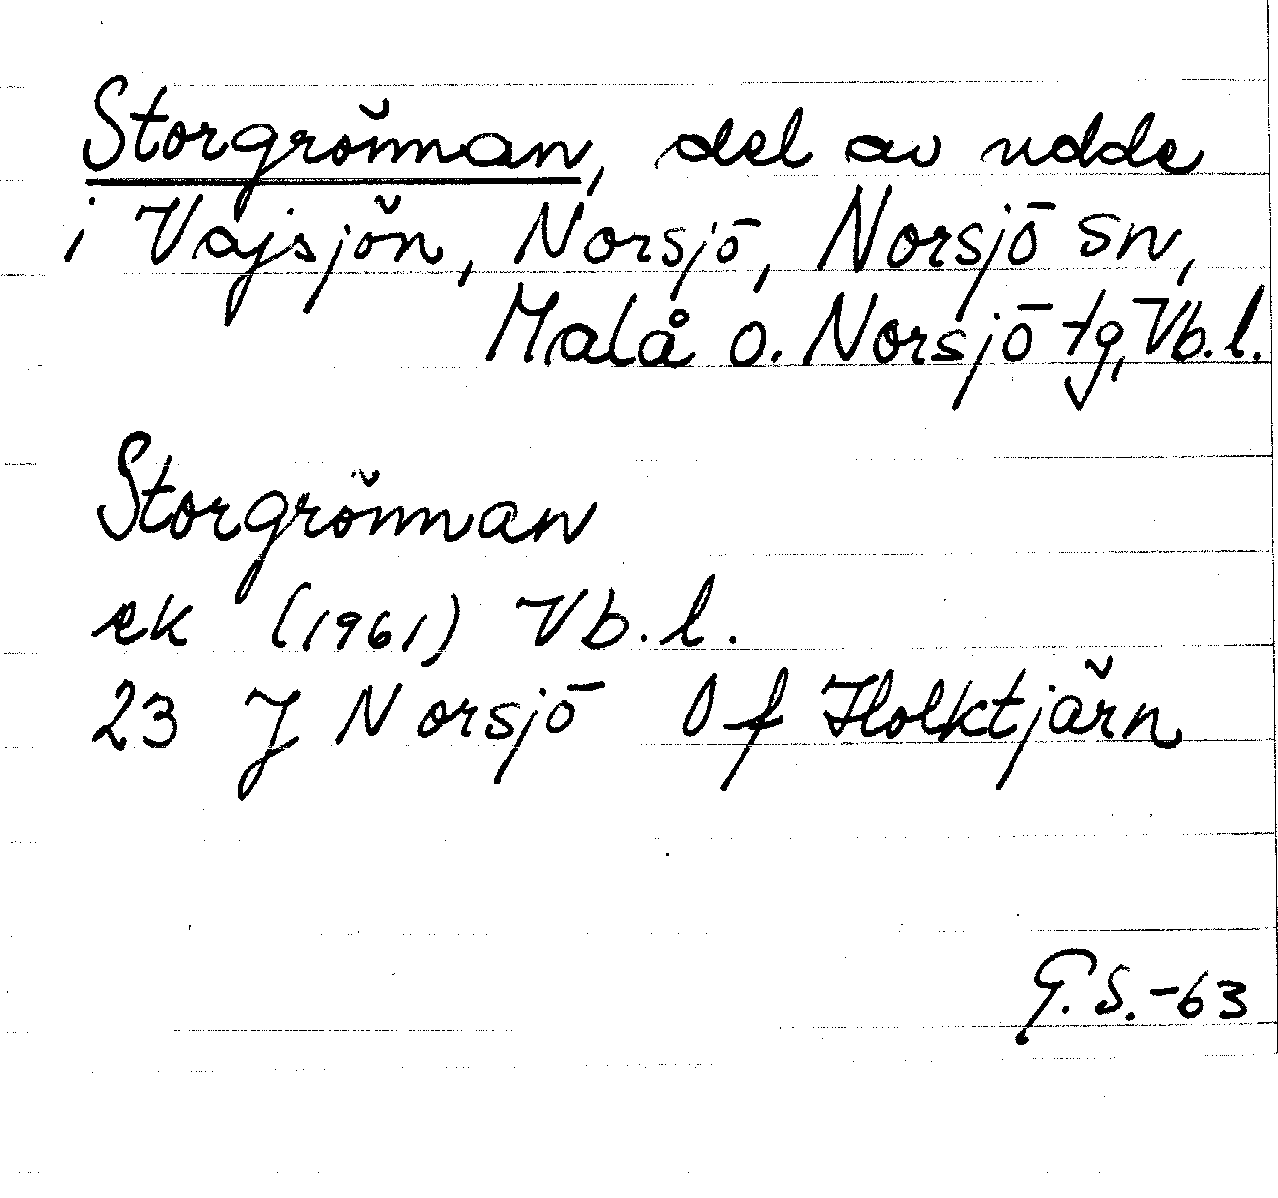 Storgrönnan, del av udde
i Vajsjön, Norsjö, Norsjö sn,
Malå o. Norsjö tg, Vb.l.
Storgrönnan
ek (1961) Vb.l.
23 J Norsjö 0 f Holktjärn
G.S.-63